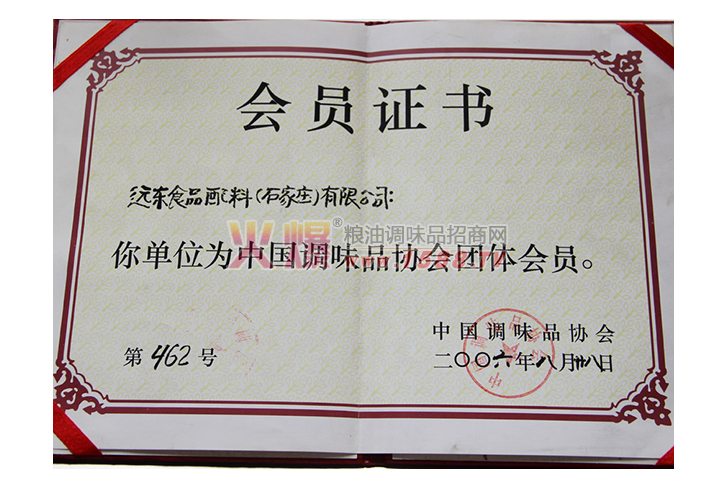 会员证书
远东食品配料(石家庄)有限公司:
火爆®粮油调味品招商网
你单位为中国调味品协会团体会员。
中国调味品协会
第462号
二〇〇六年八月廿八日